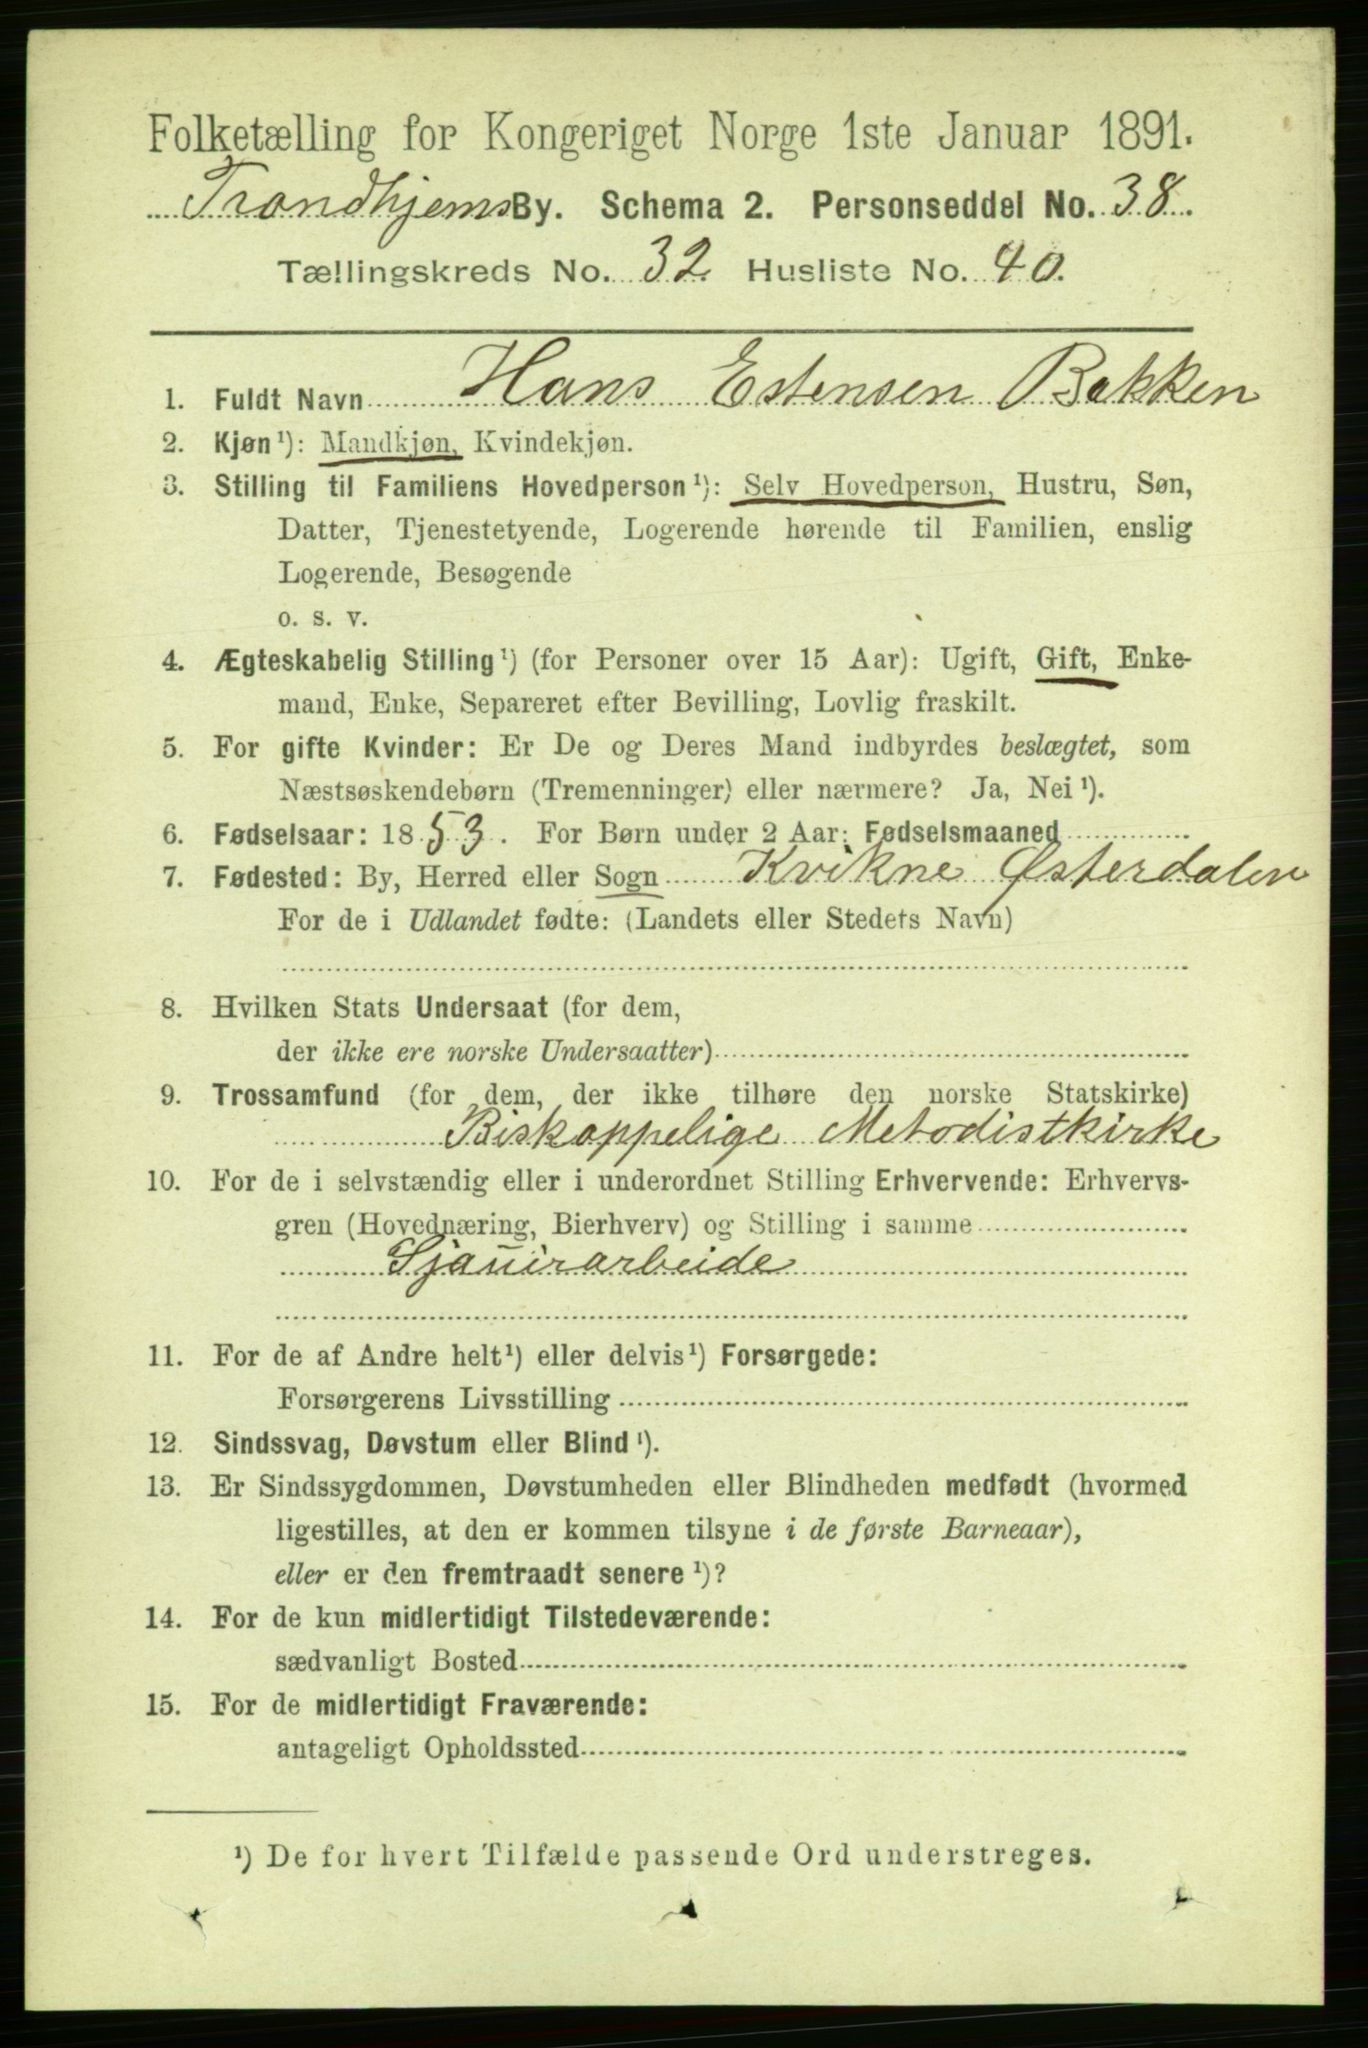 Folketælling for Kongeriget Norge 1ste Januar 1891.
Trondhjems By. Schema 2. Personseddel No. 38.
Tællingskreds No. 32. Husliste No. 40.
1. Fuldt Navn Hans Estensen Bakken
2. Kjøn¹): Mandkjøn, Kvindekjøn.
3. Stilling til Familiens Hovedperson¹): Selv Hovedperson, Hustru, Søn,
Datter, Tjenestetyende, Logerende hørende til Familien, enslig
Logerende, Besøgende
o. s. v.
4. Ægteskabelig Stilling¹) (for Personer over 15 Aar): Ugift, Gift, Enke-
mand, Enke, Separeret efter Bevilling, Lovlig fraskilt.
5. For gifte Kvinder: Er De og Deres Mand indbyrdes beslægtet, som
Næstsøskendebørn (Tremenninger) eller nærmere? Ja, Nei¹).
6. Fødselsaar: 1853. For Børn under 2 Aar: Fødselsmaaned
7. Fødested: By, Herred eller Sogn Kvikne Østerdalen
For de i Udlandet fødte: (Landets eller Stedets Navn)
8. Hvilken Stats Undersaat (for dem,
der ikke ere norske Undersaatter)
9. Trossamfund (for dem, der ikke tilhøre den norske Statskirke)
Biskoppelige Metodistkirke
10. For de i selvstændig eller i underordnet Stilling Erhvervende: Erhvervs-
gren (Hovednæring, Bierhverv) og Stilling i samme
Sjauirarbeide
11. For de af Andre helt¹) eller delvis¹) Forsørgede:
Forsørgerens Livsstilling
12. Sindssvag, Døvstum eller Blind¹).
13. Er Sindssygdommen, Døvstumheden eller Blindheden medfødt (hvormed
ligestilles, at den er kommen tilsyne i de første Barneaar),
eller er den fremtraadt senere¹)?
14. For de kun midlertidigt Tilstedeværende:
sædvanligt Bosted
15. For de midlertidigt Fraværende:
antageligt Opholdssted
¹) De for hvert Tilfælde passende Ord understreges.